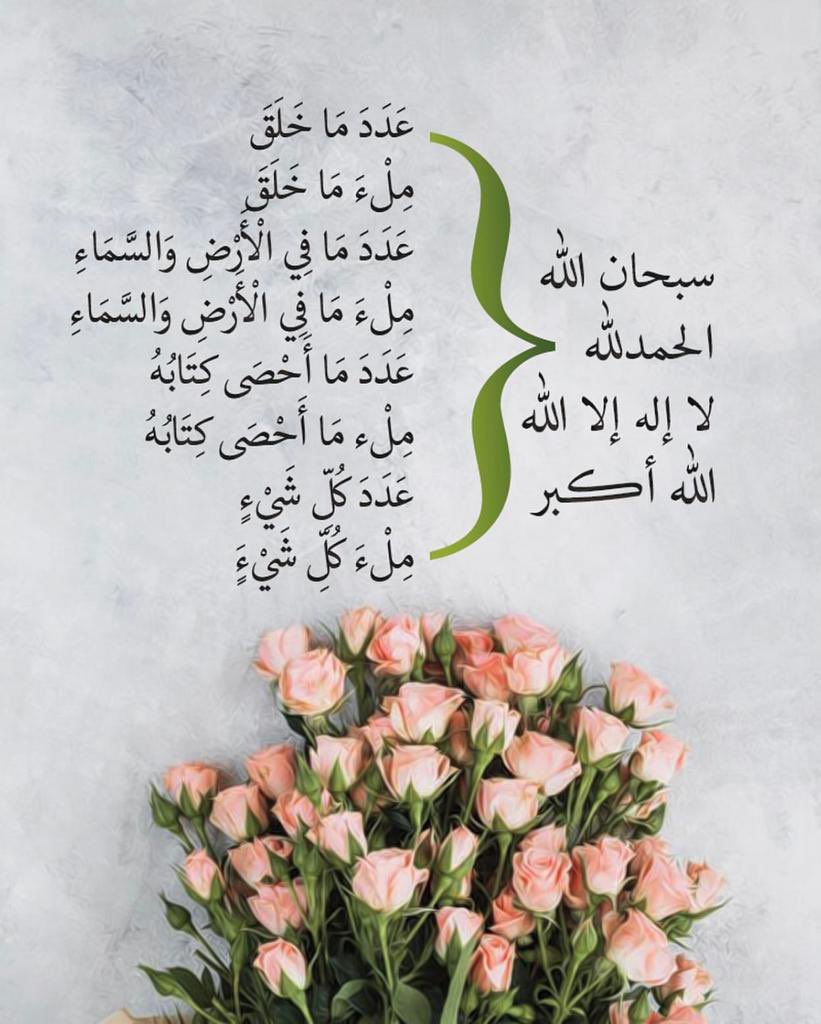 سبحان الله
الحمدلله
لا إله إلا الله
الله أكبر
عَدَدَ مَا خَلَقَ
مِلْءَ مَا خَلَقَ
عَدَدَ مَا فِي الْأَرْضِ وَالسَّمَاءِ
مِلْءَ مَا فِي الْأَرْضِ وَالسَّمَاءِ
عَدَدَ مَا أَحْصَى كِتَابُهُ
مِلْء مَا أَحْصَى كِتَابُهُ
عَدَدَ كُلّ شَيْءٍ
مِلْءَ كُلِّ شَيْءٍ